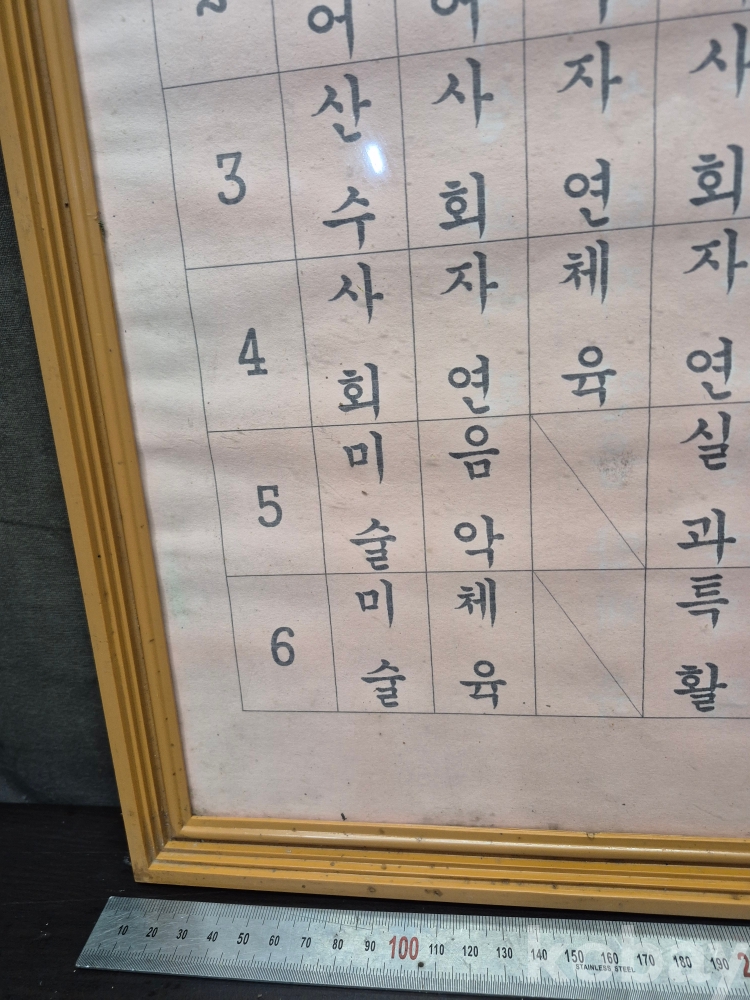 어 어
3 산수 사회 자연 사회
4 사회 자연 체육 자연
5 미술 음악 실과
6 미술 체육 특활
10 20 30 40 50 60 70 80 90 100 110 120 130 140 150 160 170 180 190
STAINLESS STEEL